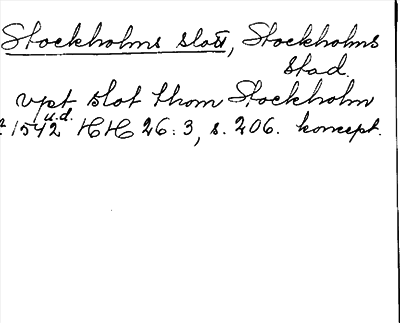 Stockholms slott, Stockholms
stad.
vpt slot thom Stockholm
u.d.
1542 HH 26:3, s. 206. koncept.